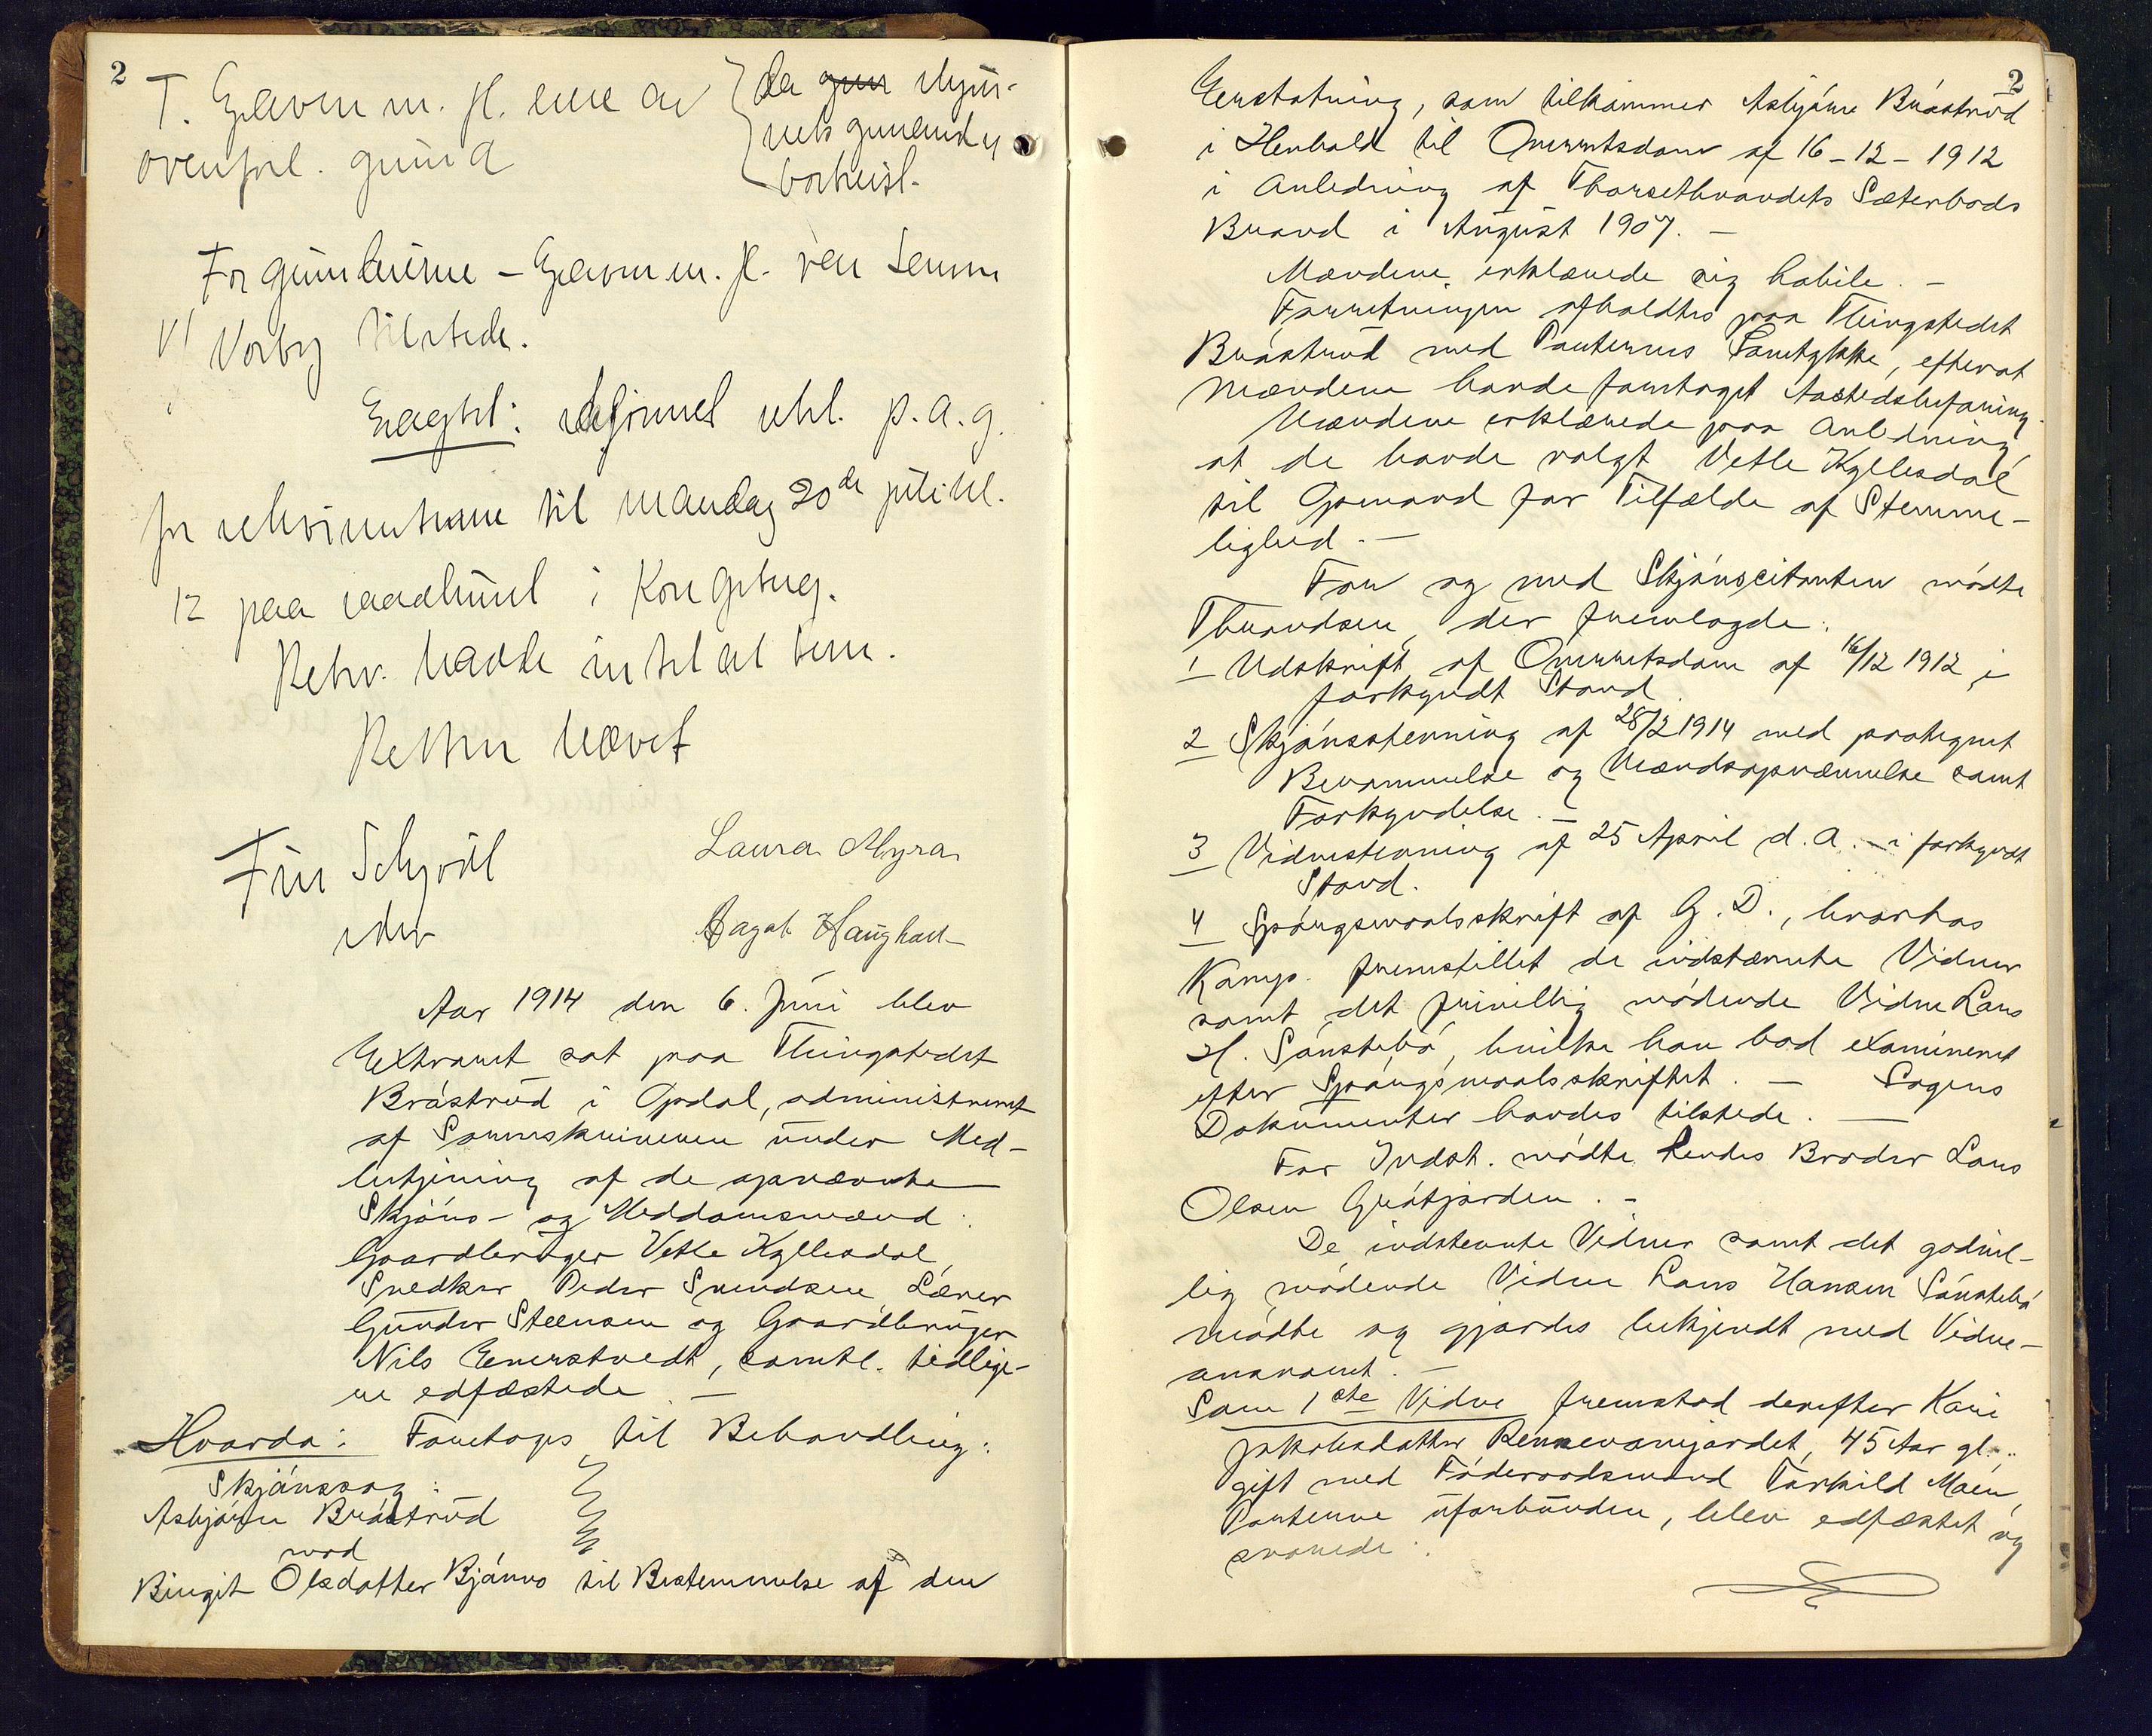 2
T. Gavin m. fl. eiere av
ovenfor. grund
da skjøn-
nets
bortreist.
For grundeierne - m. fl. ven
V/ Vorby tilstede.
Eragtet: uts. p. a. g.
for til mandag 20de juli kl.
12 paa raadhuset i Kongsberg.
Retsv. hadde intet at bem.
Retten hævet
Laura Myra
Aagot Haugholt
Aar 1914 den 6. Juni blev
Extraret sat paa Thingstedet
Bråstrud i Opdal, administreret
af Sorenskriveren under Med-
betjening af de opnævnte
Skjøns- og Meddomsmænd:
Gaardbruger Vetle Kyllesdal
Snedker Peder Svendsen Lærer
Gunder Steensen og Gaardbruger
Nils Enerstvedt, samtl. tidlige-
re edfæstede. —
Hvorda: Foretoges til Behandling:
Skjønssag:
Asbjørn Bråstrud
mod
Birgit Olsdatter Bjønno til Bestemmelse af den
2
Erstatning, som tilkommer Asbjørn Bråstrud
i Henhold til Overretsdom af 16-12-1912
i Anledning af Thorsethvandets Sæterbods
Brand i August 1907. —
Mændene erklærede sig habile. —
Forretningen afholdtes paa Thingstedet
Bråstrud med Parternes Samtykke, efterat
Mændene havde foretaget Aastedsbefaring.
Mændene erklærede paa Anledning
at de havde valgt Vetle Kyllesdal
til Opmand for Tilfælde af Stemme-
lighed. —
For og med Skjønscitanten mødte
Thrandsen, der fremlagde:
1 Udskrift af Overretsdom af 16/12 1912 i
forkyndt Stand.
2 Skjønsstevning af 28/2 1914 med paategnet
Berammelse og Mændsopnævnelse samt
Forkyndelse. —
3 Vidnestevning af 25 April d. A. i forkyndt
Stand.
4 Spørgsmaalsskrift af G. D., hvorhos
Komp. fremstillet de indstævnte Vidner
samt det frivillig mødende Vidne Lars
H. Sønstebø, hvilke han bad examineret
efter Spørgsmaalsskriftet. — Sagens
Dokumenter havdes tilstede. —
For Indst. mødte hendes Broder Lars
Olsen Grøtjorden. —
De indstevnte Vidner samt det godvil-
lig mødende Vidne Lars Hansen Sønstebø
mødte og gjordes bekjendt med Vidne-
ansvaret. —
Som 1ste Vidne fremstod derefter Kari
Jakobsdatter Rennevamjordet, 45 Aar gl.,
gift med Føderaadsmand Torkild Moen,
Parterne uforbunden, blev edfæstet og
svarede: